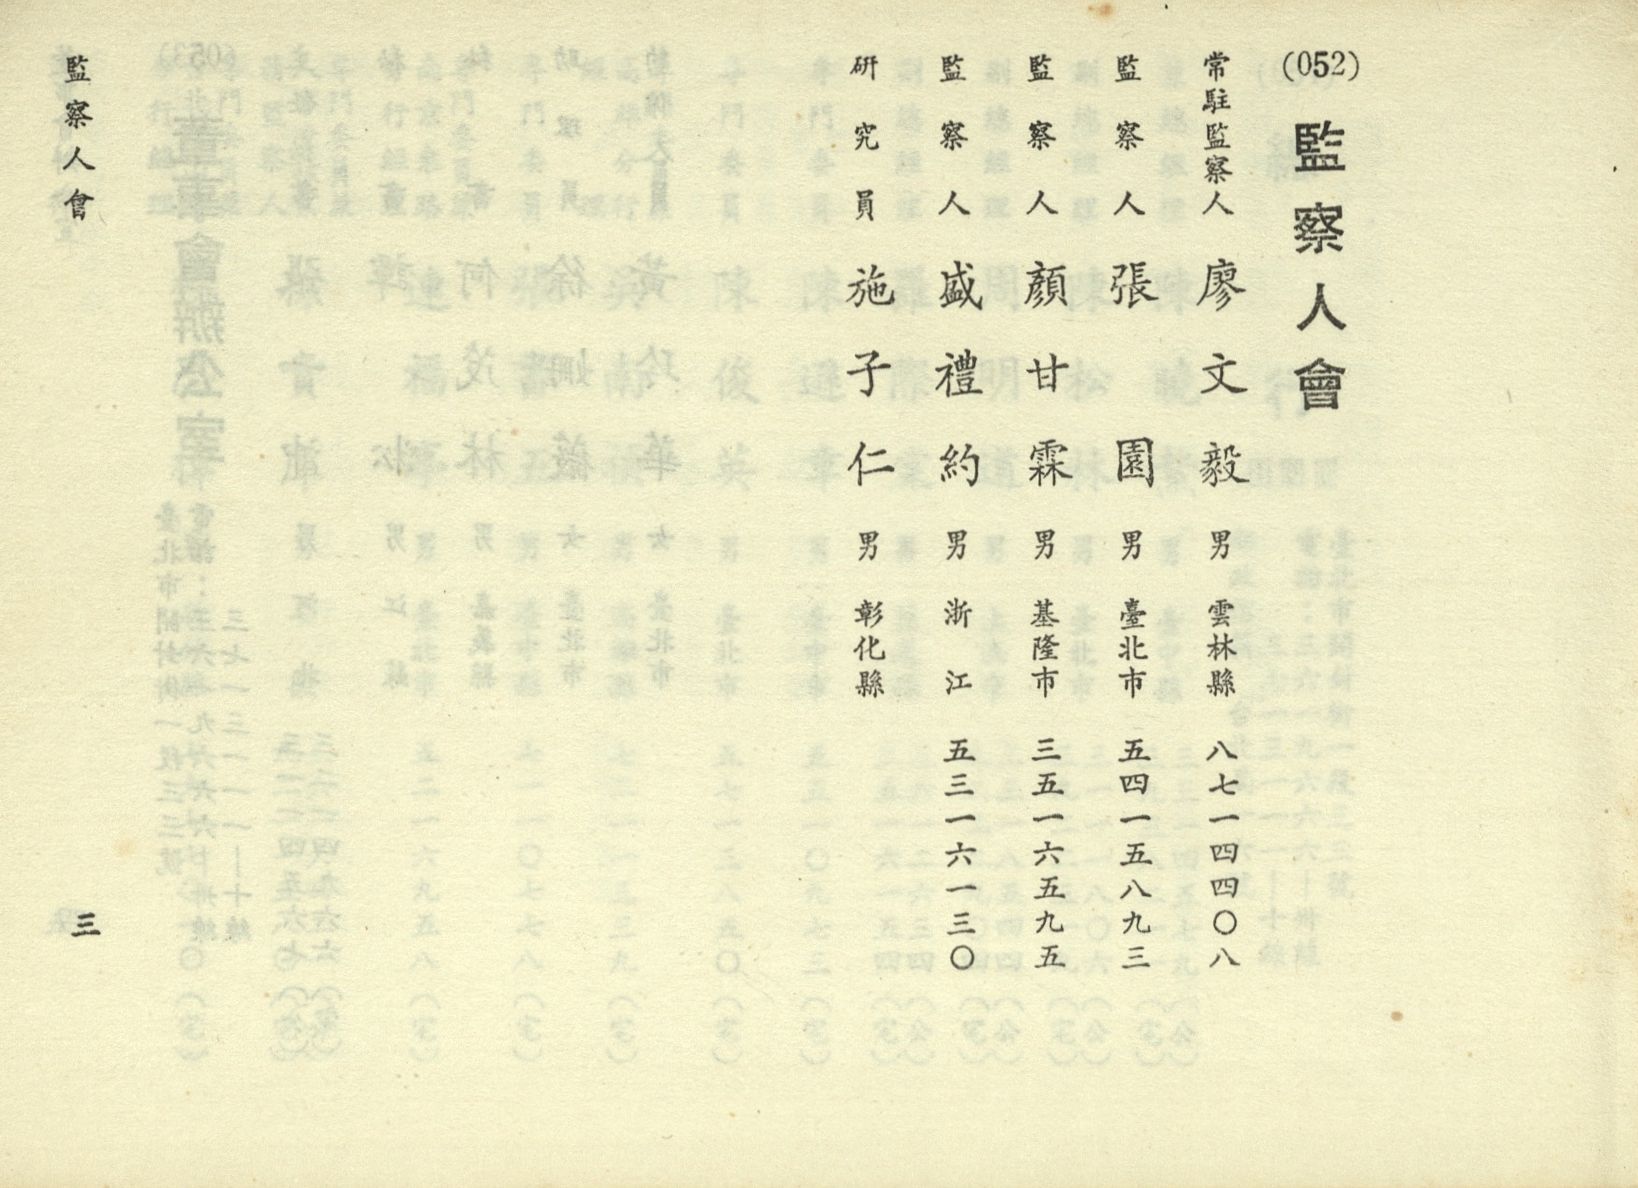 (052)
監察人會
常駐監察人 廖文毅 男 雲林縣 八七一四四〇八
監察人 張園 男 臺北市 五四一五八九三
監察人 顏甘霖 男 基隆市 三五一六五九五
監察人 盛禮約 男 浙江 五三一六一三〇
研究員 施子仁 男 彰化縣
監察人會
三